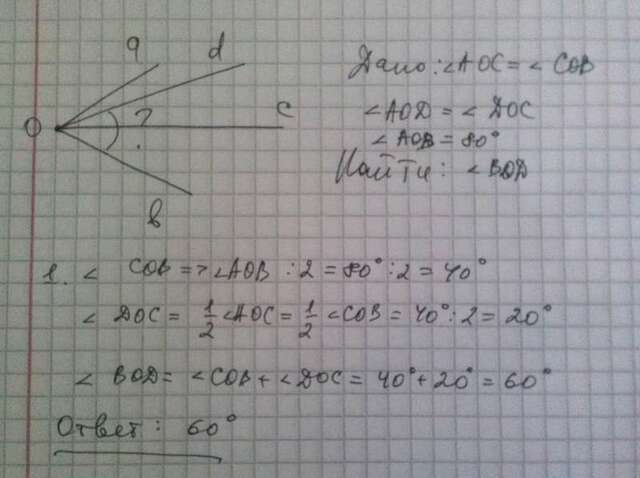 a d
Дано: <AOC = < COB
O ? c
<AOD = < DOC
<AOB = 80°
Найти: <BOD
b
1. < COB => <AOB : 2 = 80° : 2 = 40°
< DOC = 1/2 <AOC = 1/2 <COB = 40° : 2 = 20°
< BOD = <COB + <DOC = 40° + 20° = 60°
Ответ: 60°